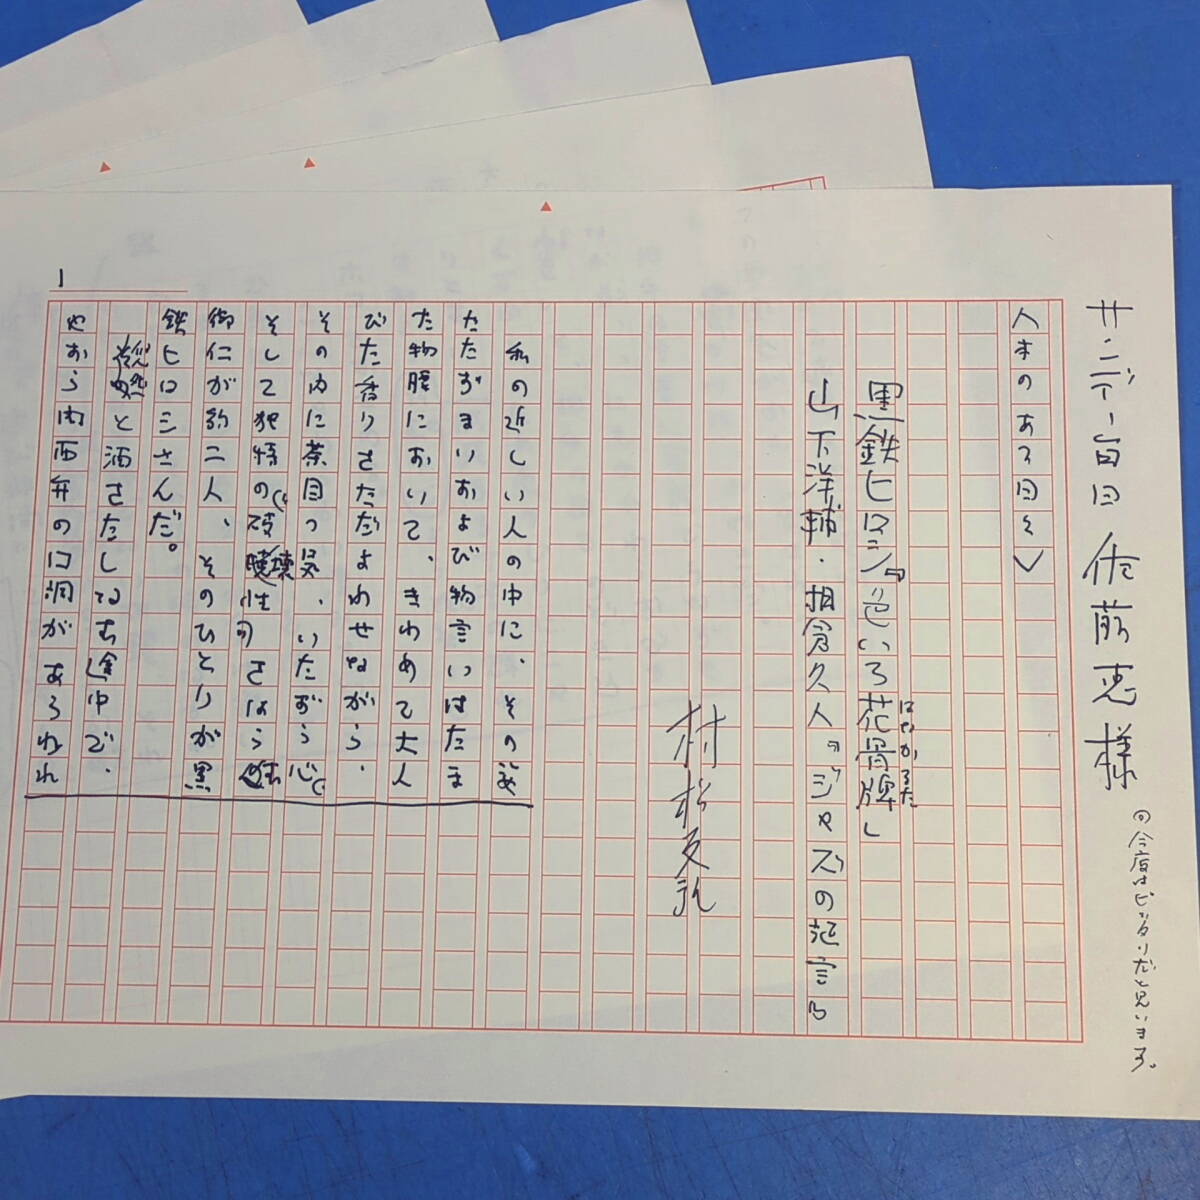 サンデー毎日 佐藤恵様
の今度はピッタリだと思います。
人本のある日々
黒鉄ヒロシ『色いろ花骨牌』
はなかるた
山下洋輔・相倉久人『ジャズの証言』
村松友視
1
私の近しい人の中に、その姿
たたずまいおよび物言いはたま
た物腰において、きわめて大人
びた香りさただよわせながら、
その内に茶目っ気、いたずら心
そして独特の破壊性
御仁が約二人、そのひとりが黒
鉄ヒロシさんだ。
と酒さたしなむ途中で、
やおら内面弁の口洞があらわれ